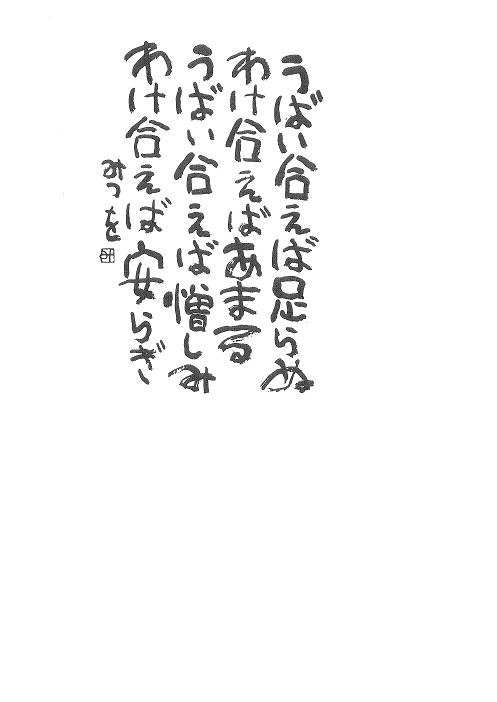 うばい合えば足らぬ
わけ合えばあまる
うばい合えば憎しみ
わけ合えば安らぎ
みつを